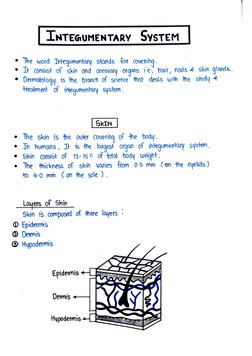 INTEGUMENTARY SYSTEM
• The word Integumentary stands for covering.
• It consist of skin and accessory organs i.e, hair, nails & skin glands.
• Dermatology is the branch of science that deals with the study &
treatment of integumentary system.
SKIN
• The skin is the outer covering of the body.
• In humans, It is the largest organ of integumentary system.
• Skin consist of 12-15% of total body weight.
• The thickness of skin varies from 0.5 mm (on the eyelids)
to 4.0 mm (on the sole).
Layers of Skin
Skin is composed of three layers:
① Epidermis
② Dermis
③ Hypodermis
Epidermis
Dermis
Hypodermis